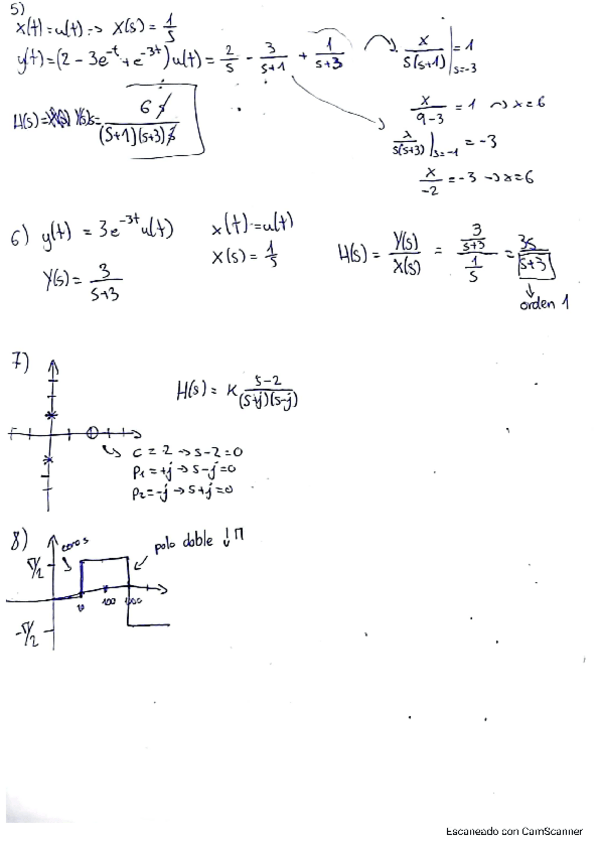 5)
x(t) = u(t) → X(s) = 1/s
y(t) = (2 - 3e^-t + e^-3t) u(t) = 2/s - 3/(s+1) + 1/(s+3)
x/(s(s+1)) |s=-3 = 1
x/(9-3) = 1 → x = 6
x/(s(s+3)) |s=-1 = -3
x/-2 = -3 → x = 6
H(s) = 6s/((s+1)(s+3)s)
6) y(t) = 3e^-3t u(t) x(t) = u(t)
Y(s) = 3/(s+3) X(s) = 1/s
H(s) = Y(s)/X(s) = (3/(s+3))/(1/s) = 3s/(s+3)
orden 1
7)
H(s) = K (s-2)/((s+j)(s-j))
c = 2 → s-2=0
P1 = +j → s-j=0
P2 = -j → s+j=0
8) ceros polo doble ↓π
π/2
10 100 1000
-π/2
Escaneado con CamScanner